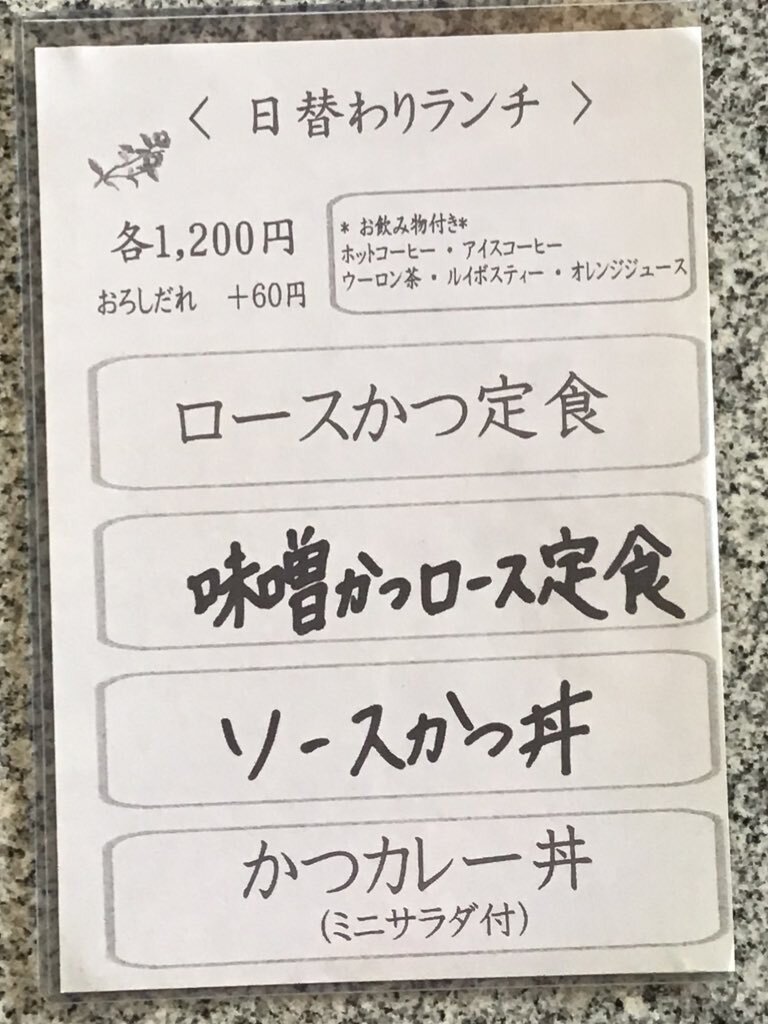 〈 日替わりランチ 〉
各1,200円
おろしだれ ＋60円
* お飲み物付き*
ホットコーヒー・アイスコーヒー
ウーロン茶・ルイボスティー・オレンジジュース
ロースかつ定食
味噌かつロース定食
ソースかつ丼
かつカレー丼
(ミニサラダ付)